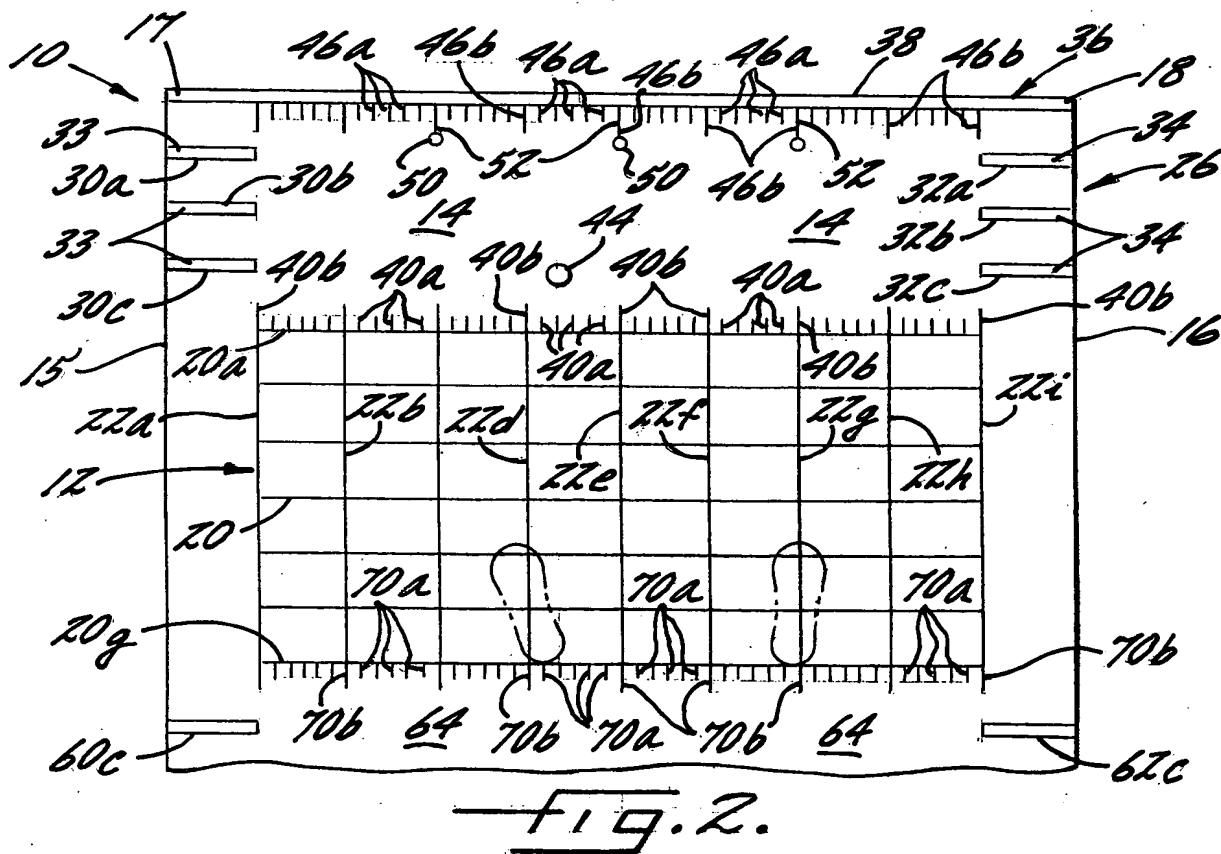 10 17 46a 46b 46a 46b 46a 38 36 46b 18
33 34
30a 30b 50 52 50 46b 52 32a 26
33 14 44 14 32b 34
30c 40b 40a 40b 40b 40a 32c 40b
15 20a 40a 40b 16
22a 22b 22d 22e 22f 22g 22h 22i
12
20
70a 70a 70a
20g 70b
70b 64 70b 70a 70b 64
60c 62c
fig. 2.